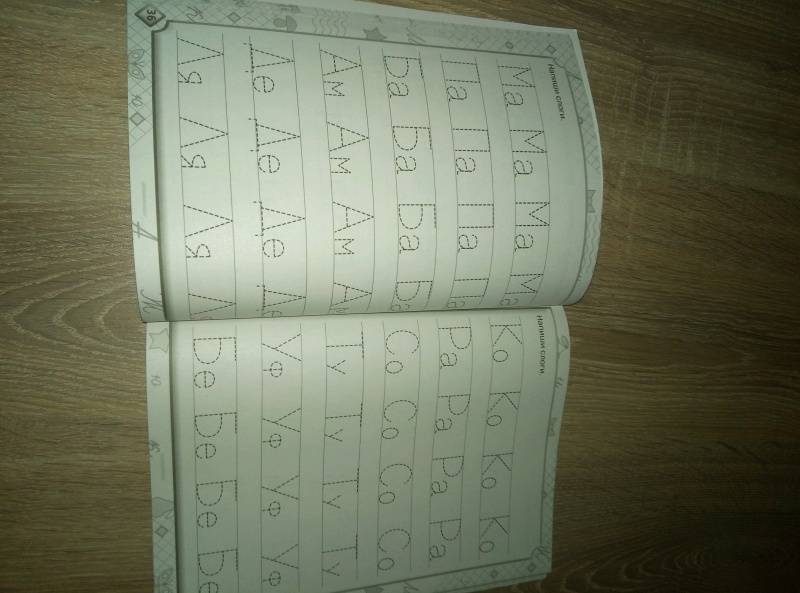 Напиши слоги.
Ма Ма Ма Ма
Па Па Па Па
Ба Ба Ба Ба
Ам Ам Ам Ам
Де Де Де Де
Ля Ля Ля Л
36
Напиши слоги.
Ко Ко Ко Ко
Ра Ра Ра Ра
Со Со Со Со
Ту Ту Ту Ту
Уф Уф Уф Уф
Бе Бе Бе Бе